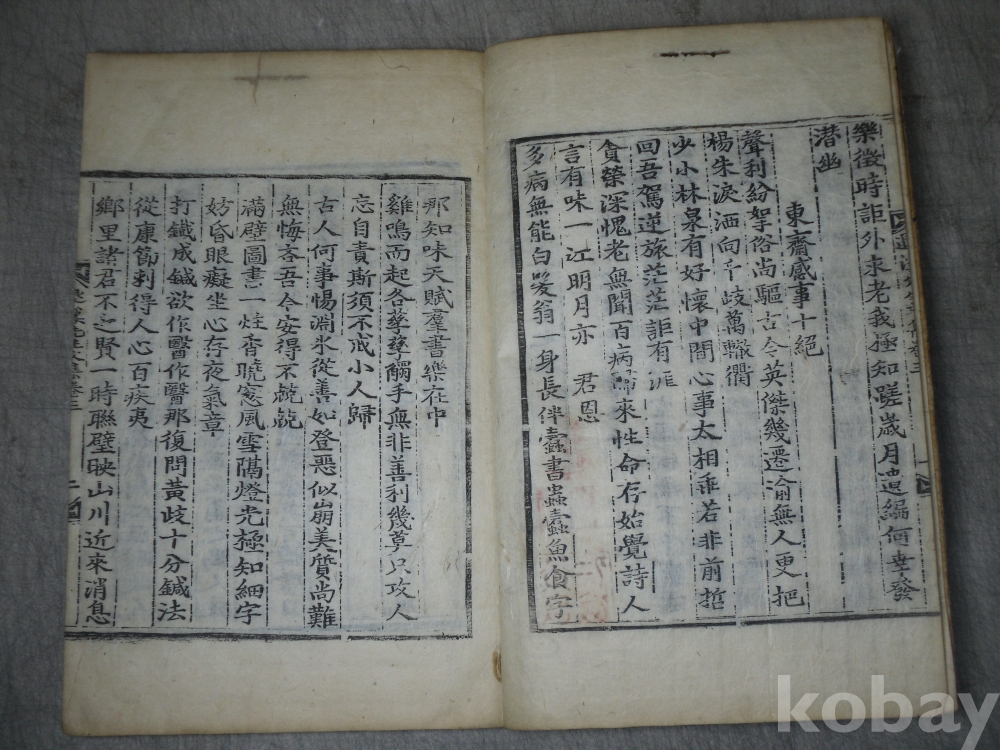 樂徵時詎外求老我極知蹉歲月遺編何幸發
潛幽
東齋感事十絕
聲利紛挐俗尚驅古今英傑幾遷渝無人更把
楊朱淚洒向千歧萬轍衢
少小林泉有好懷中間心事太相乖若非前哲
回吾駕逆旅茫茫詎有涯
貪榮深愧老無聞百病歸來性命存始覺詩人
言有味一江明月亦 君恩
多病無能白髮翁一身長伴蠹書蟲蠹魚食字
那知味天賦羣書樂在中
雞鳴而起各孳孳觸手無非善利幾莫只攻人
忘自責斯須不戒小人歸
古人何事惕淵氷從善如登惡似崩美質尚難
無悔吝吾今安得不兢兢
滿壁圖書一炷香曉窓風雪隔燈光極知細字
妨昏眼癡坐心存夜氣章
打鐵成鍼欲作醫作醫那復問黃歧十分鍼法
從康節剩得人心百疾夷
鄉里諸君不乏賢一時聯璧映山川近來消息
卷三
二
kobay